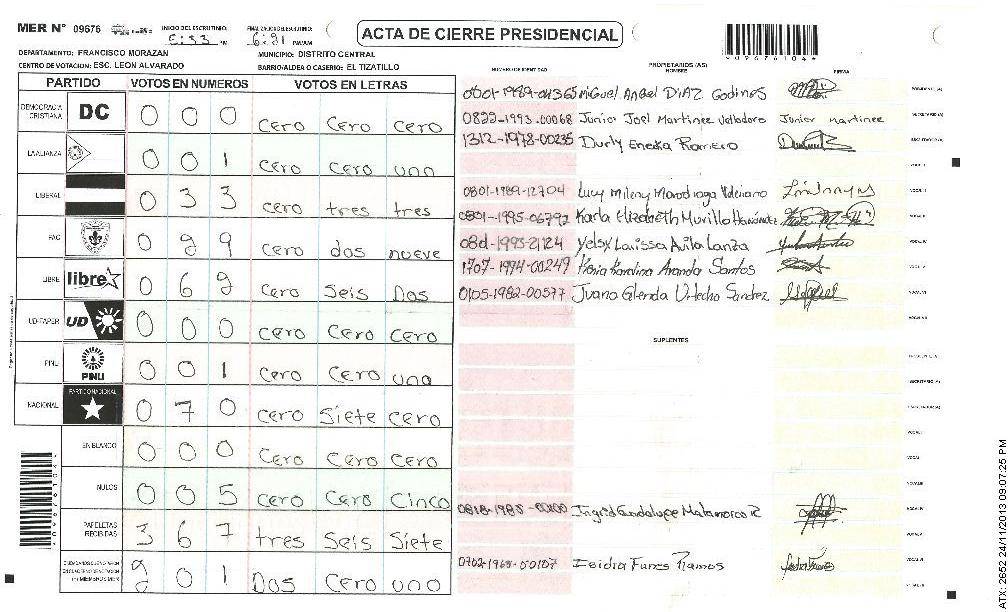 MER N° 09676 INICIO DEL ESCRUTINIO: 5:33 PM FINALIZACION DEL ESCRUTINIO: 6:21 PM/AM
ACTA DE CIERRE PRESIDENCIAL
*09676104*
DEPARTAMENTO: FRANCISCO MORAZAN MUNICIPIO: DISTRITO CENTRAL
CENTRO DE VOTACION: ESC. LEON ALVARADO BARRIO/ALDEA O CASERIO: EL TIZATILLO
PARTIDO VOTOS EN NUMEROS VOTOS EN LETRAS
DEMOCRACIA CRISTIANA DC 0 0 0 cero cero cero
LA ALIANZA 0 0 1 cero cero uno
LIBERAL 0 3 3 cero tres tres
PAC 0 2 9 cero dos nueve
LIBRE libre 0 6 2 cero Seis Dos
UD-FAPER UD 0 0 0 cero cero cero
PINU PINU 0 0 1 cero cero uno
NACIONAL PARTIDO NACIONAL 0 7 0 cero Siete cero
EN BLANCO 0 0 0 cero cero cero
NULOS 0 0 5 cero cero Cinco
PAPELETAS RECIBIDAS 3 6 7 tres Seis Siete
2 0 1 Dos cero uno
NUMERO DE IDENTIDAD PROPIETARIOS (AS) NOMBRE FIRMA
0801-1989-04365 Miguel Angel DiAZ Godines PRESIDENTE (A)
0822-1993-00068 Junior Joel Martinez Valladares Junior Martinez SECRETARIO (A)
1312-1978-00235 Durly Eneida Romero
0801-1989-12704 Lucy Mileny
0801-1995-06792 Karla Elizabeth Murillo Hernández
Yelsy Larissa Avila Lanza
1707-1994-00249 Karolina Aranda Santos
0105-1982-00577 Juana Glenda Urtecho Sandrez
SUPLENTES
Ingrid Guadalupe Matamoros R
Funes Ramos
ATX: 2652 24/11/2013 09:07:25 PM